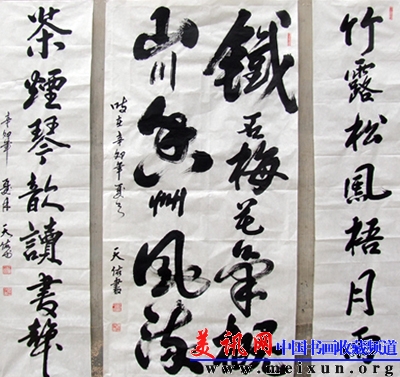 竹露松風梧月雨
鐵石梅花氣概
山川香草風流
時在辛卯年夏月
天佑書
茶煙琴韻讀書聲
辛卯年 夏月 天佑
美讯网 中国书画收藏频道
www.meixun.org